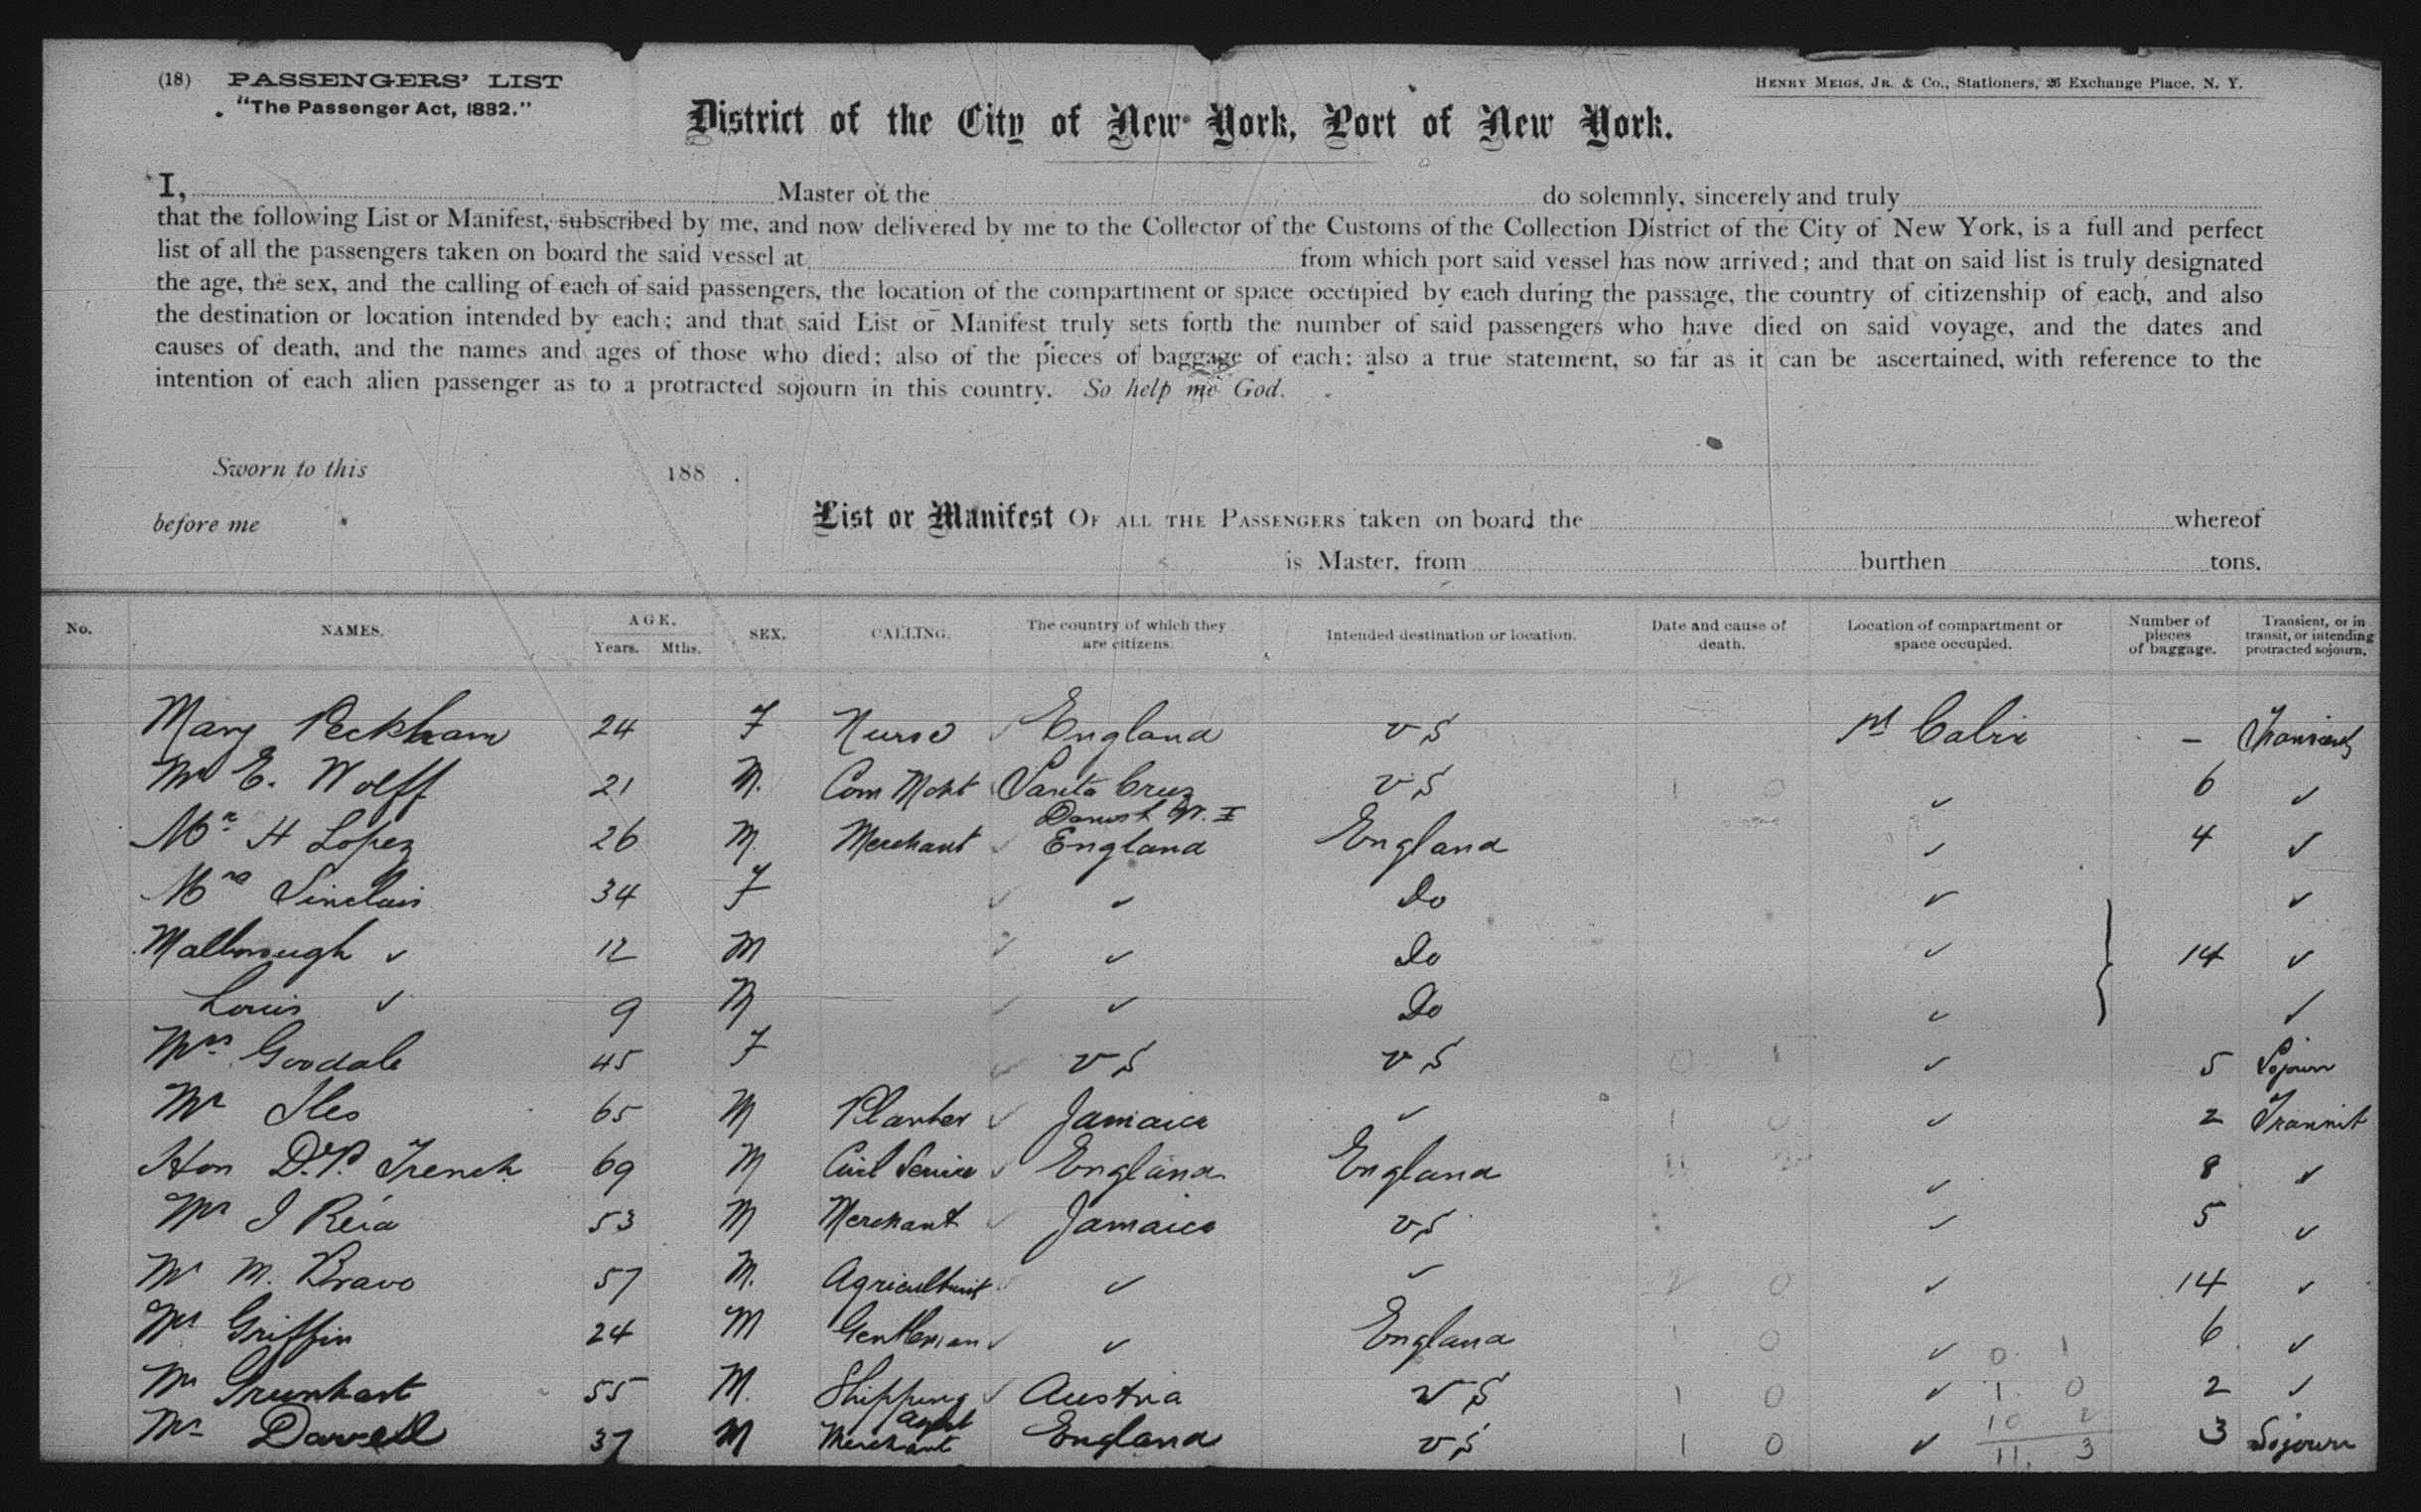 (18) PASSENGERS' LIST
"The Passenger Act, 1882."
HENRY MEIGS, JR. & Co., Stationers, 26 Exchange Place, N. Y.
District of the City of New York, Port of New York.
I, Master of the do solemnly, sincerely and truly
that the following List or Manifest, subscribed by me, and now delivered by me to the Collector of the Customs of the Collection District of the City of New York, is a full and perfect
list of all the passengers taken on board the said vessel at from which port said vessel has now arrived; and that on said list is truly designated
the age, the sex, and the calling of each of said passengers, the location of the compartment or space occupied by each during the passage, the country of citizenship of each, and also
the destination or location intended by each; and that said List or Manifest truly sets forth the number of said passengers who have died on said voyage, and the dates and
causes of death, and the names and ages of those who died; also of the pieces of baggage of each; also a true statement, so far as it can be ascertained, with reference to the
intention of each alien passenger as to a protracted sojourn in this country. So help me God.
Sworn to this 188 .
before me
List or Manifest OF ALL THE PASSENGERS taken on board the whereof
is Master, from burthen tons.
No. NAMES. AGE. Years. Mths. SEX. CALLING. The country of which they are citizens. Intended destination or location. Date and cause of death. Location of compartment or space occupied. Number of pieces of baggage. Transient, or in transit, or intending protracted sojourn.
Mary Peckham 24 F Nurse ✓ England U S 1st Cabin – Transient
Mr E. Wolff 21 M. Com Mcht Santa Cruz U S 1 0 ✓ 6 ✓
Danish W. I
Mr H Lopez 26 M Merchant ✓ England England ✓ 4 ✓
Mrs Sinclair 34 F ✓ ✓ Do ✓ ✓
Malborough ✓ 12 M ✓ ✓ Do ✓ 14 ✓
Louis ✓ 9 M ✓ ✓ Do ✓ ✓
Mrs Goodale 45 F ✓ U S U S 0 1 ✓ 5 Sojourn
Mr Iles 65 M Planter ✓ Jamaica ✓ 1 0 ✓ 2 Transit
Hon D. P. Trench 69 M Civil Service ✓ England England ✓ 8 ✓
Mr J Reid 53 M Merchant ✓ Jamaica U S ✓ 5 ✓
Mr M. Bravo 57 M. Agriculturist ✓ ✓ ✓ 2 0 ✓ 14 ✓
Mr Griffin 24 M Gentleman ✓ ✓ England 1 0 ✓ 0 1 6 ✓
Mr 55 M. Shipping Agent ✓ Austria U S 1 0 ✓ 1 0 2 ✓
10 2
Mr Darrell 37 M Merchant England U S 1 0 ✓ 11. 3 3 Sojourn